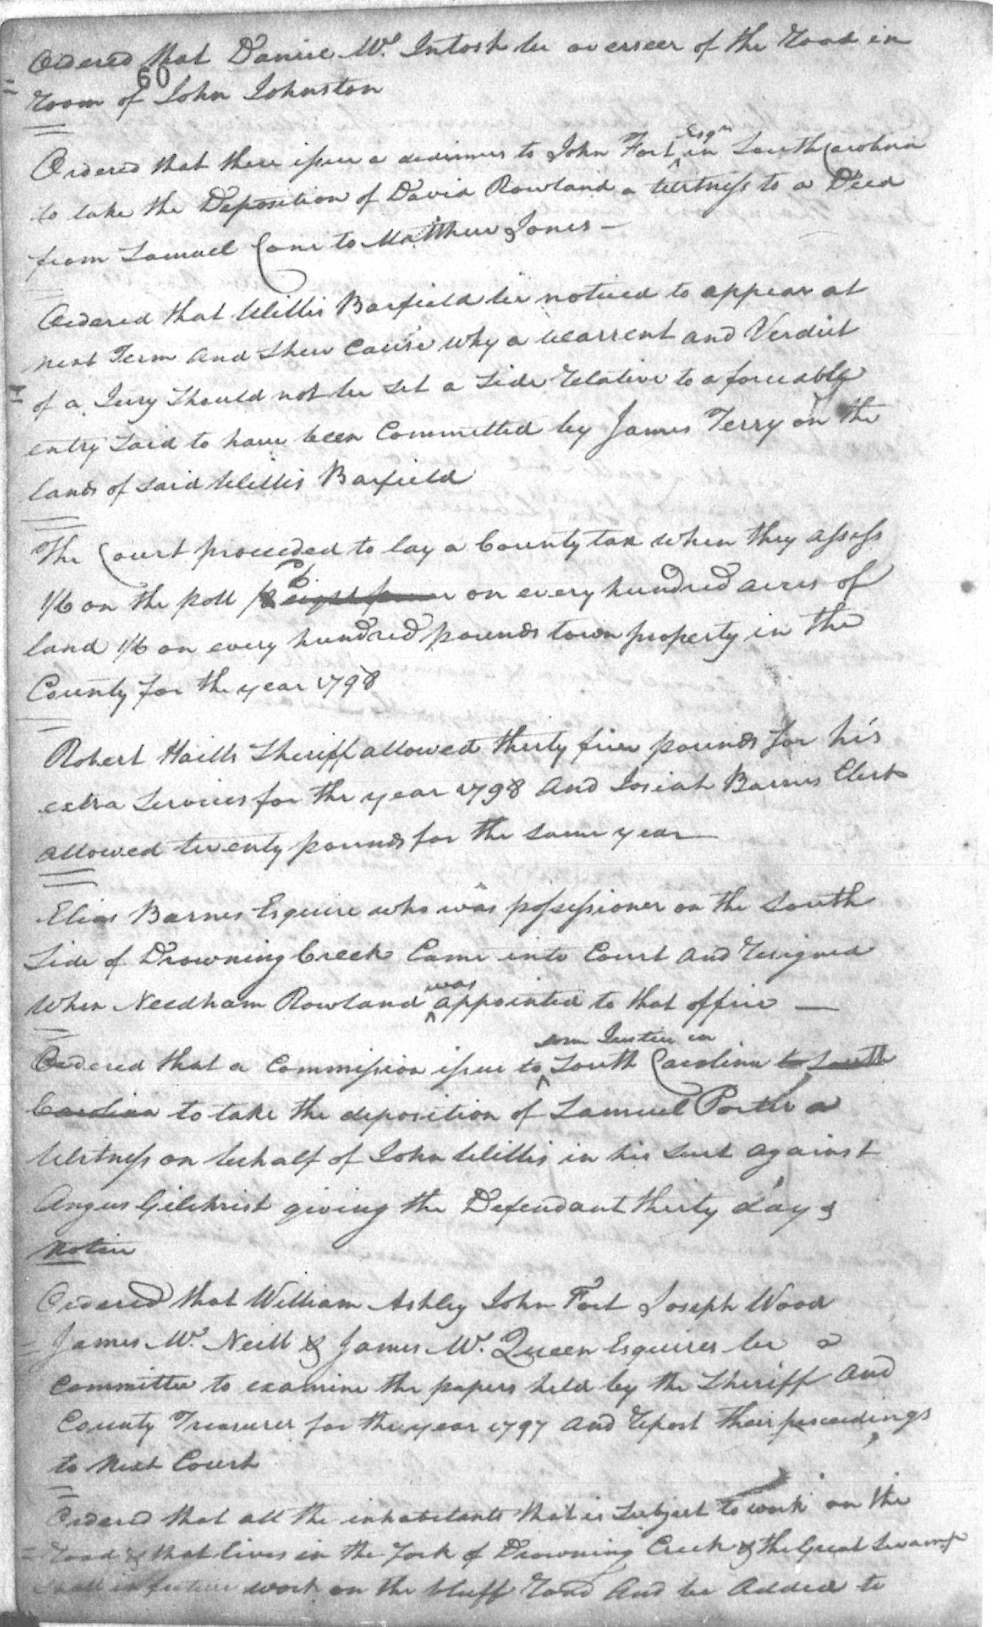 Ordered that Daniel Mc Intosh be overseer of the road in
60
room of John Johnston
Ordered that there issue a dedimus to John Fort Esqr in South Carolina
to take the Deposition of David Rowland a Witness to a Deed
from Samuel Cone to Matthew Jones —
Ordered that Willis Barfield be noticed to appear at
next Term and Shew Cause why a Warrent and Verdict
of a Jury Should not be Set a Side relative to a forceably
entry Said to have been Committed by James Terry on the
lands of said Willis Barfield
The Court proceeded to lay a County tax when they assess
1/6 on the poll /6 on every hundred acres of
land 1/6 on every hundred pounds town property in the
County for the year 1798
Robert Haills Sheriff allowed thirty five pounds for his
extra Services for the year 1798 and Josiah Barnes Clerk
allowed twenty pounds for the same year —
Elias Barnes Esquire who was possessioner on the South
Side of Drowning Creek Came into Court and resigned
when Needham Rowland was appointed to that office —
Ordered that a Commission issue to som Justice in South Carolina to South
Carolina to take the deposition of Samuel a
Witness on behalf of John Willis in his suit against
Angus Gilchrist giving the Defendant thirty days
notice
Ordered that William Ashley John Fort Joseph Wood
James Mc Neill & James Mc Queen Esquires be a
Committee to examine the papers held by the Sheriff and
County Treasurer for the year 1797 and report their proceedings
to Next Court
Ordered that all the inhabitants that is Subject to work on the
road & that lives in the fork of Drowning Creek & the Great Swamp
Shall in future work on the bluff road and be added to